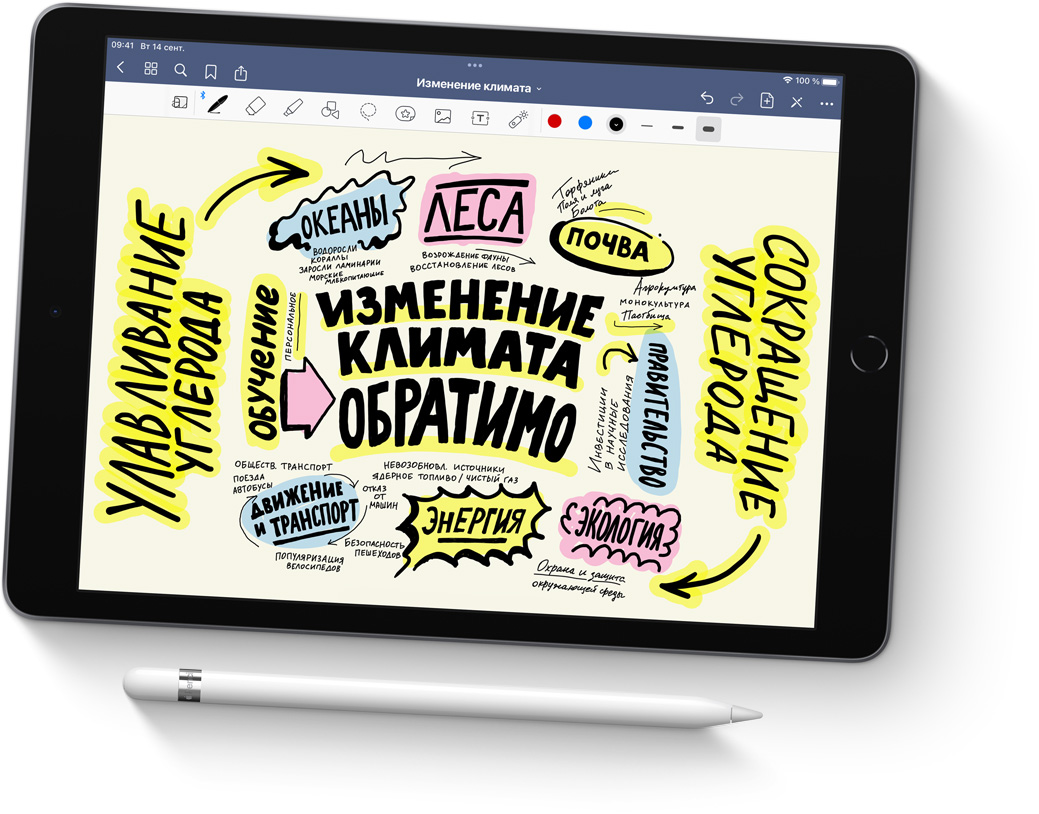 09:41 Вт 14 сент.
100 %
Изменение климата
T
УЛАВЛИВАНИЕ
УГЛЕРОДА
ОКЕАНЫ
ВОДОРОСЛИ
КОРАЛЛЫ
ЗАРОСЛИ ЛАМИНАРИИ
МОРСКИЕ
МЛЕКОПИТАЮЩИЕ
ЛЕСА
ВОЗРОЖДЕНИЕ ФАУНЫ
ВОССТАНОВЛЕНИЕ ЛЕСОВ
Торфяники
Поля и луга
Болота
ПОЧВА
Агрокультура
МОНОКУЛЬТУРА
Пастбища
ОБУЧЕНИЕ
ПЕРСОНАЛЬНОЕ
ИЗМЕНЕНИЕ
КЛИМАТА
ОБРАТИМО
ПРАВИТЕЛЬСТВО
Инвестиции
в научные
исследования
СОКРАЩЕНИЕ
УГЛЕРОДА
ОБЩЕСТВ. ТРАНСПОРТ
ПОЕЗДА
АВТОБУСЫ
ДВИЖЕНИЕ
И ТРАНСПОРТ
ОТКАЗ
ОТ
МАШИН
БЕЗОПАСНОСТЬ
ПЕШЕХОДОВ
ПОПУЛЯРИЗАЦИЯ
ВЕЛОСИПЕДОВ
НЕВОЗОБНОВЛ. ИСТОЧНИКИ
ЯДЕРНОЕ ТОПЛИВО / ЧИСТЫЙ ГАЗ
ЭНЕРГИЯ
ЭКОЛОГИЯ
Охрана и защита
окружающей среды